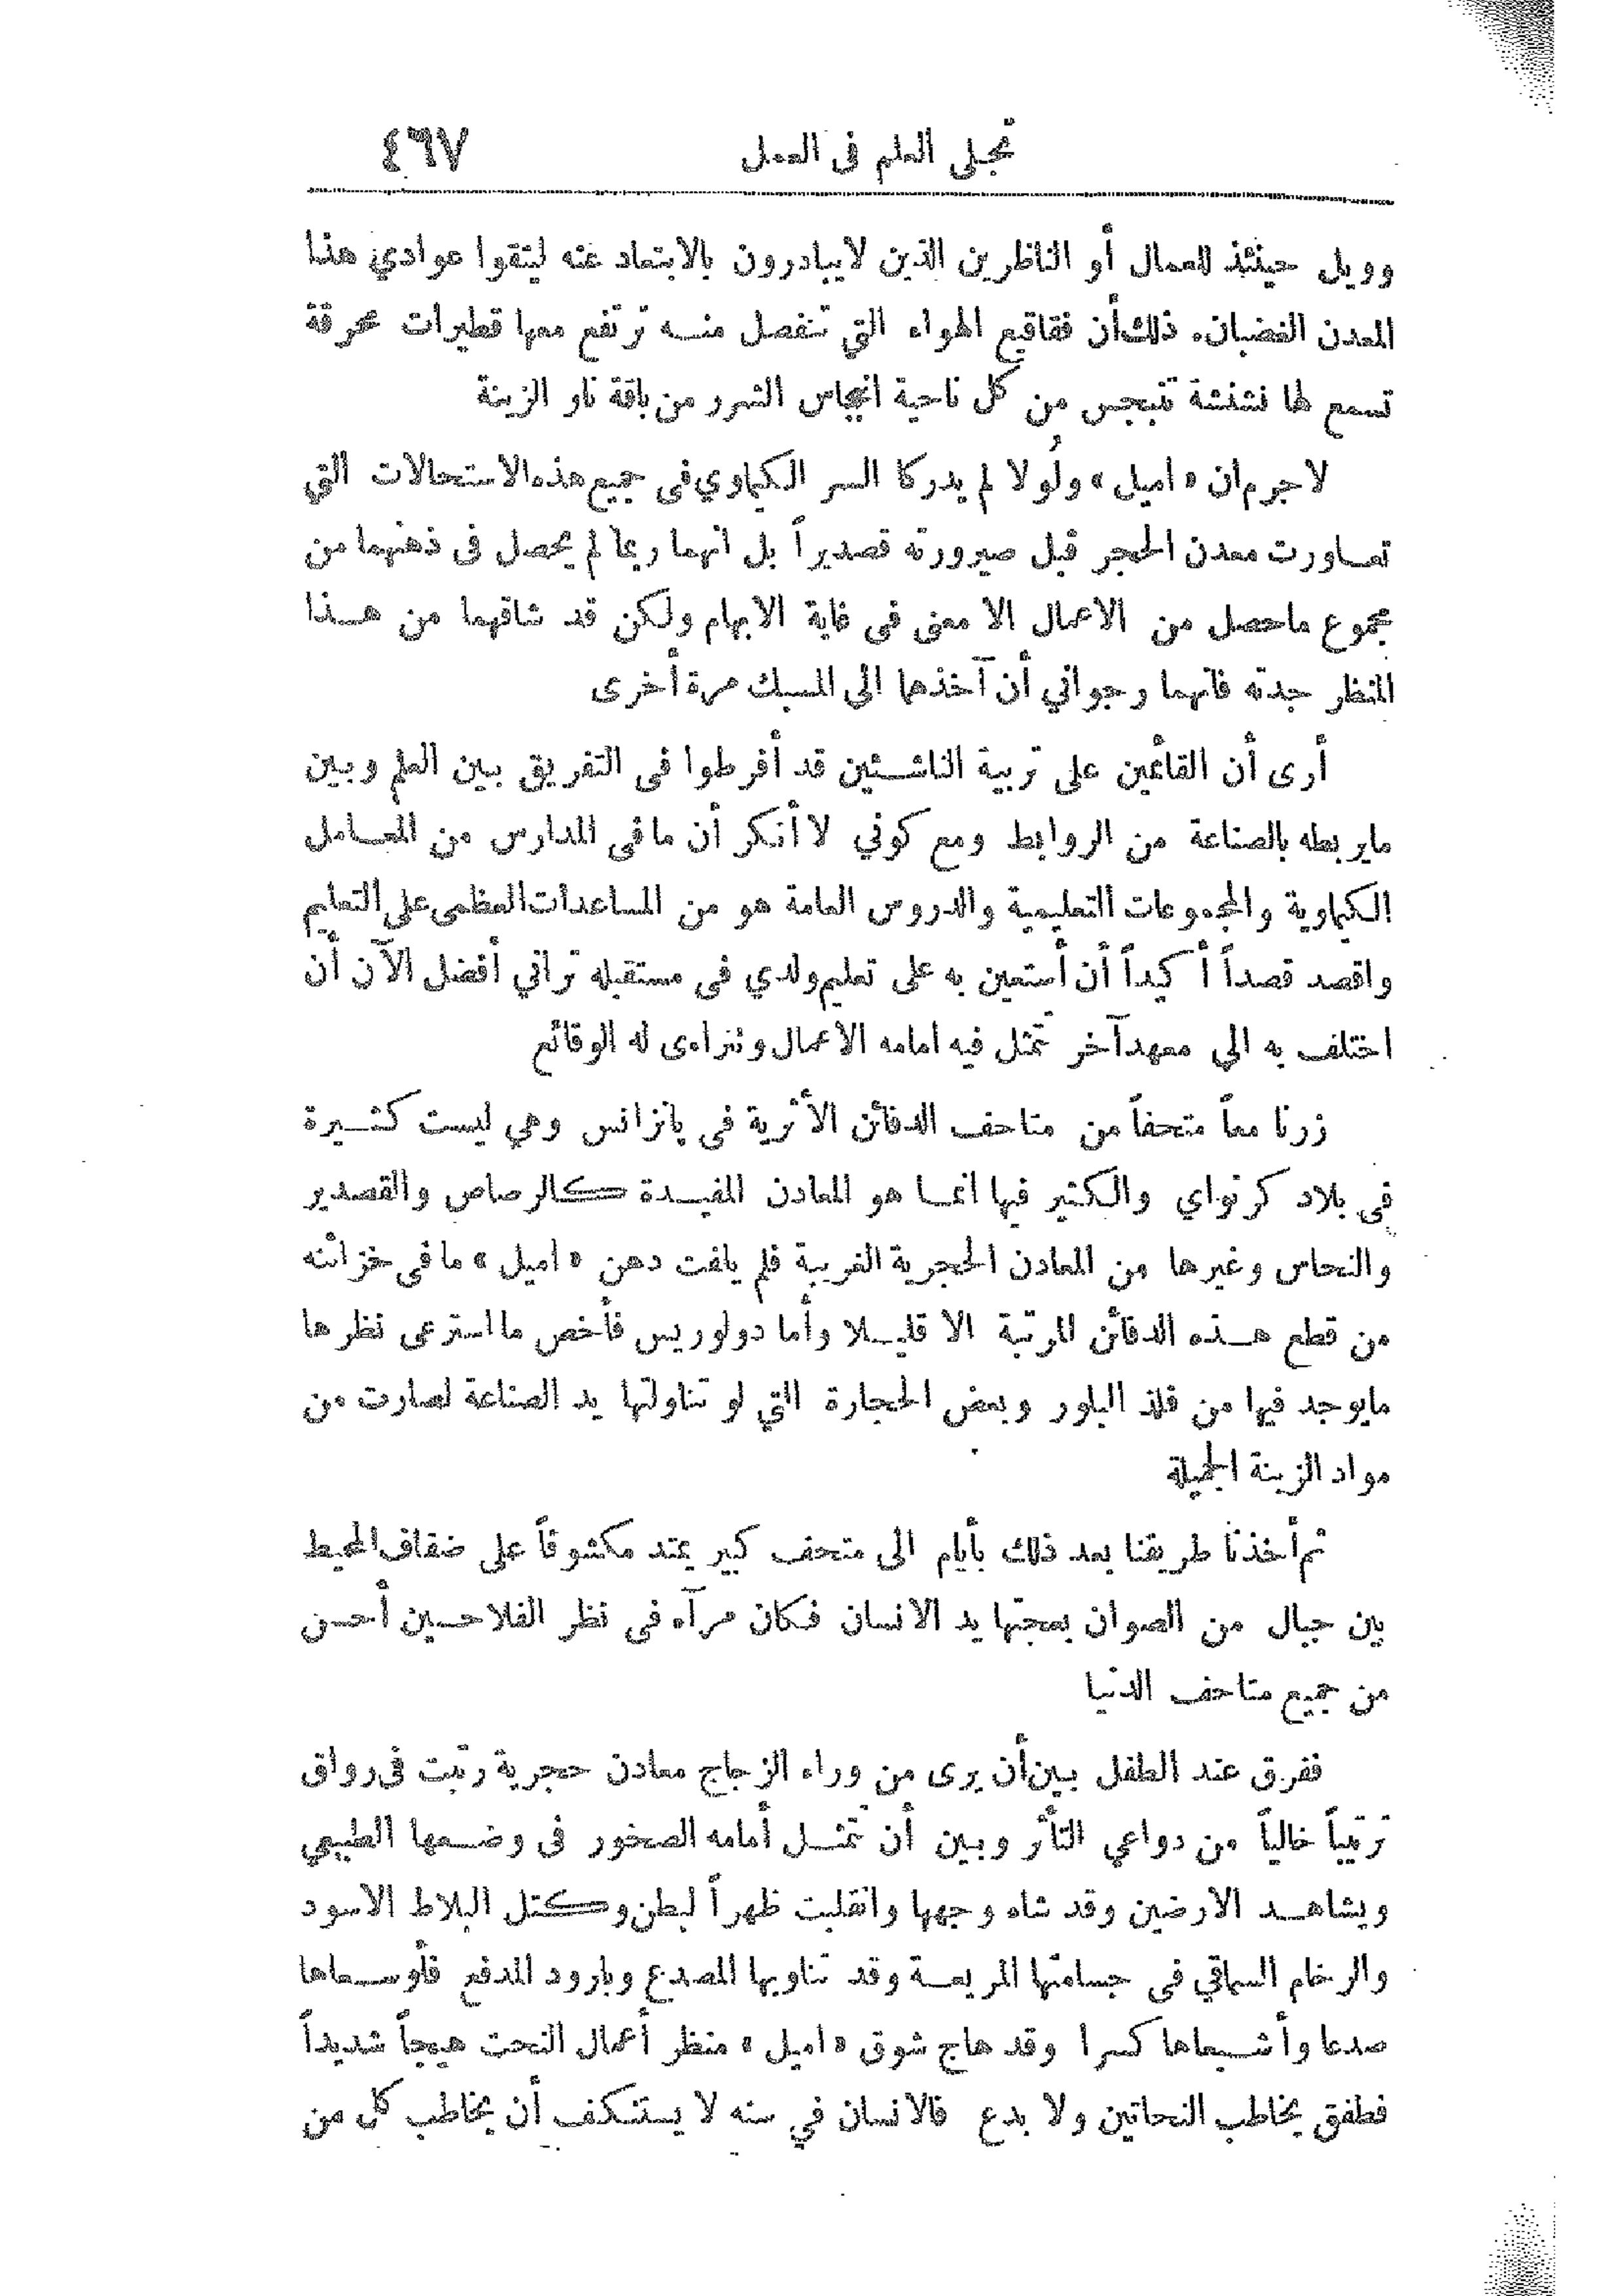 تجلى العلم فى العمل ٤٦٧
وويل حينئذ للعمال أو الناظرين الذين لايبادرون بالابتعاد عنه ليتقوا عوادي هذا
المعدن الغضبان. ذلك أن فقاقيع الهواء التي تنفصل منه ترتفع معها قطيرات محرقة
تسمع لها نشنشة تنبجس من كل ناحية انبجاس الشرر من باقة نار الزينة
لاجرم ان «اميل» ولولا لم يدركا السر الكيماوي فى جميع هذه الاستحالات التي
تعاورت معدن الحجر قبل صيرورته قصديراً بل انهما ربما لم يحصل فى ذهنهما من
مجموع ماحصل من الاعمال الا معنى فى غاية الابهام ولكن قد شاقهما من هذا
المنظر جدته فانهما رجواني أن آخذهما الى المسبك مرة أخرى
أرى أن القائمين على تربية الناشئين قد أفرطوا فى التفريق بين العلم وبين
مايربطه بالصناعة من الروابط ومع كوني لا أنكر أن مافى المدارس من المعامل
الكيماوية والمجموعات التعليمية والدروس العامة هو من المساعدات العظمى على التعليم
واقصد قصداً أكيداً أن أستعين به على تعليم ولدي فى مستقبله تراني أفضل الآن أن
اختلف به الي معهد آخر تتمثل فيه امامه الاعمال وتتراءى له الوقائع
زرنا معاً متحفاً من متاحف الدفائن الأثرية فى پانزانس وهي ليست كثيرة
فى بلاد كرنواي والكثير فيها انما هو المعادن المفيدة كالرصاص والقصدير
والنحاس وغيرها من المعادن الحجرية الغريبة فلم يلفت ذهن «اميل» مافى خزائنه
من قطع هذه الدفائن المرتبة الا قليلا وأما دولوريس فأخص ما استرعى نظرها
مايوجد فيها من فلذ البلور وبعض الحجارة التي لو تناولتها يد الصناعة لصارت من
مواد الزينة الجميلة
ثم أخذنا طريقنا بعد ذلك بأيام الى متحف كبير يمتد مكشوفاً على ضفاف المحيط
بين جبال من الصوان بعجتها يد الانسان فكان مرآه فى نظر الفلاحين أحسن
من جميع متاحف الدنيا
ففرق عند الطفل بين أن يرى من وراء الزجاج معادن حجرية رتبت فى رواق
ترتيباً خالياً من دواعي التأثر وبين أن تتمثل أمامه الصخور فى وضعها الطبيعي
ويشاهد الارضين وقد شاه وجهها وانقلبت ظهراً لبطن وكتل البلاط الاسود
والرخام السماقي فى جسامتها المريعة وقد تناوبها المصدع وبارود المدفع فأوسعاها
صدعا وأشبعاها كسرا وقد هاج شوق «اميل» منظر أعمال النحت هيجاً شديداً
فطفق يخاطب النحاتين ولا بدع فالانسان في سنه لا يستنكف أن يخاطب كل من